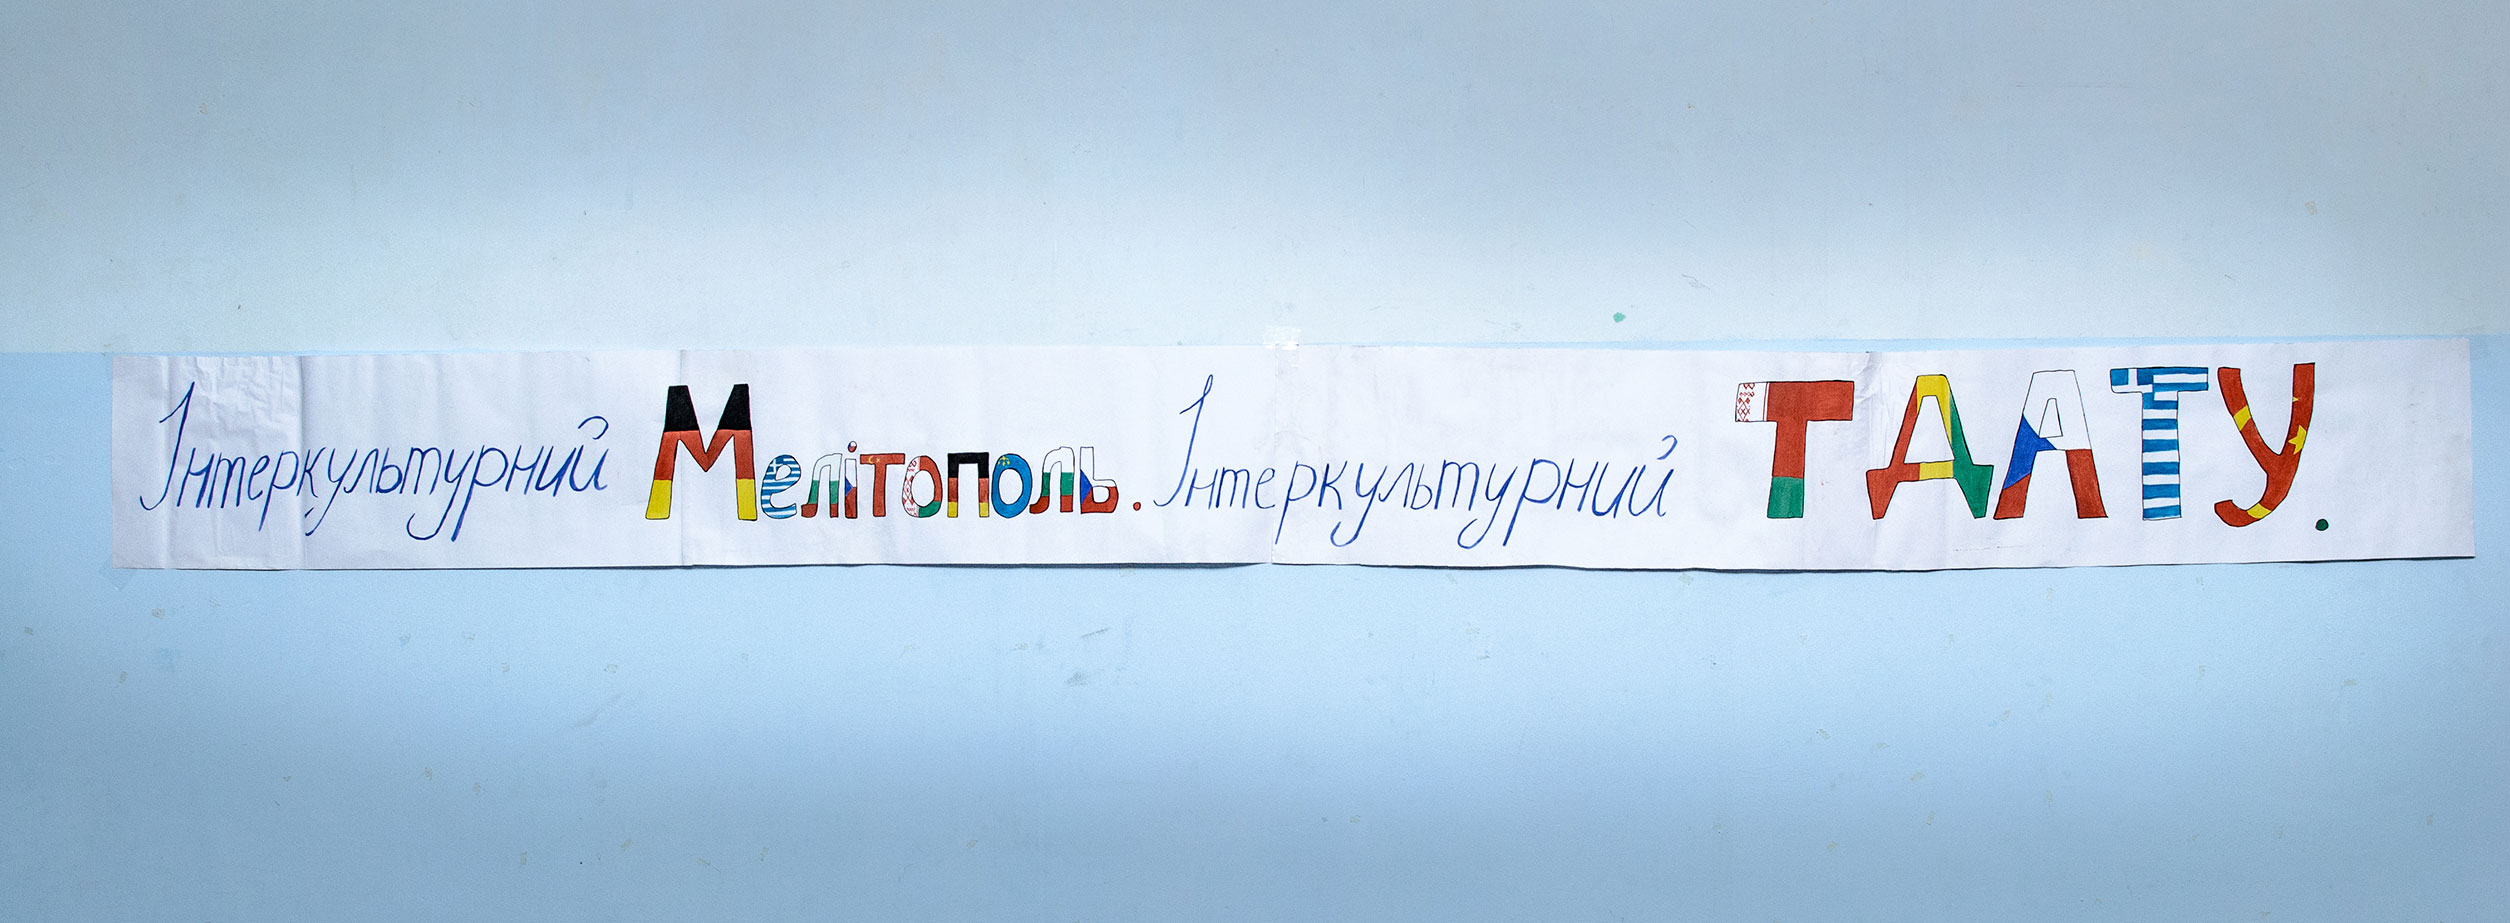 Інтеркультурний Мелітополь. Інтеркультурний ТДАТУ.